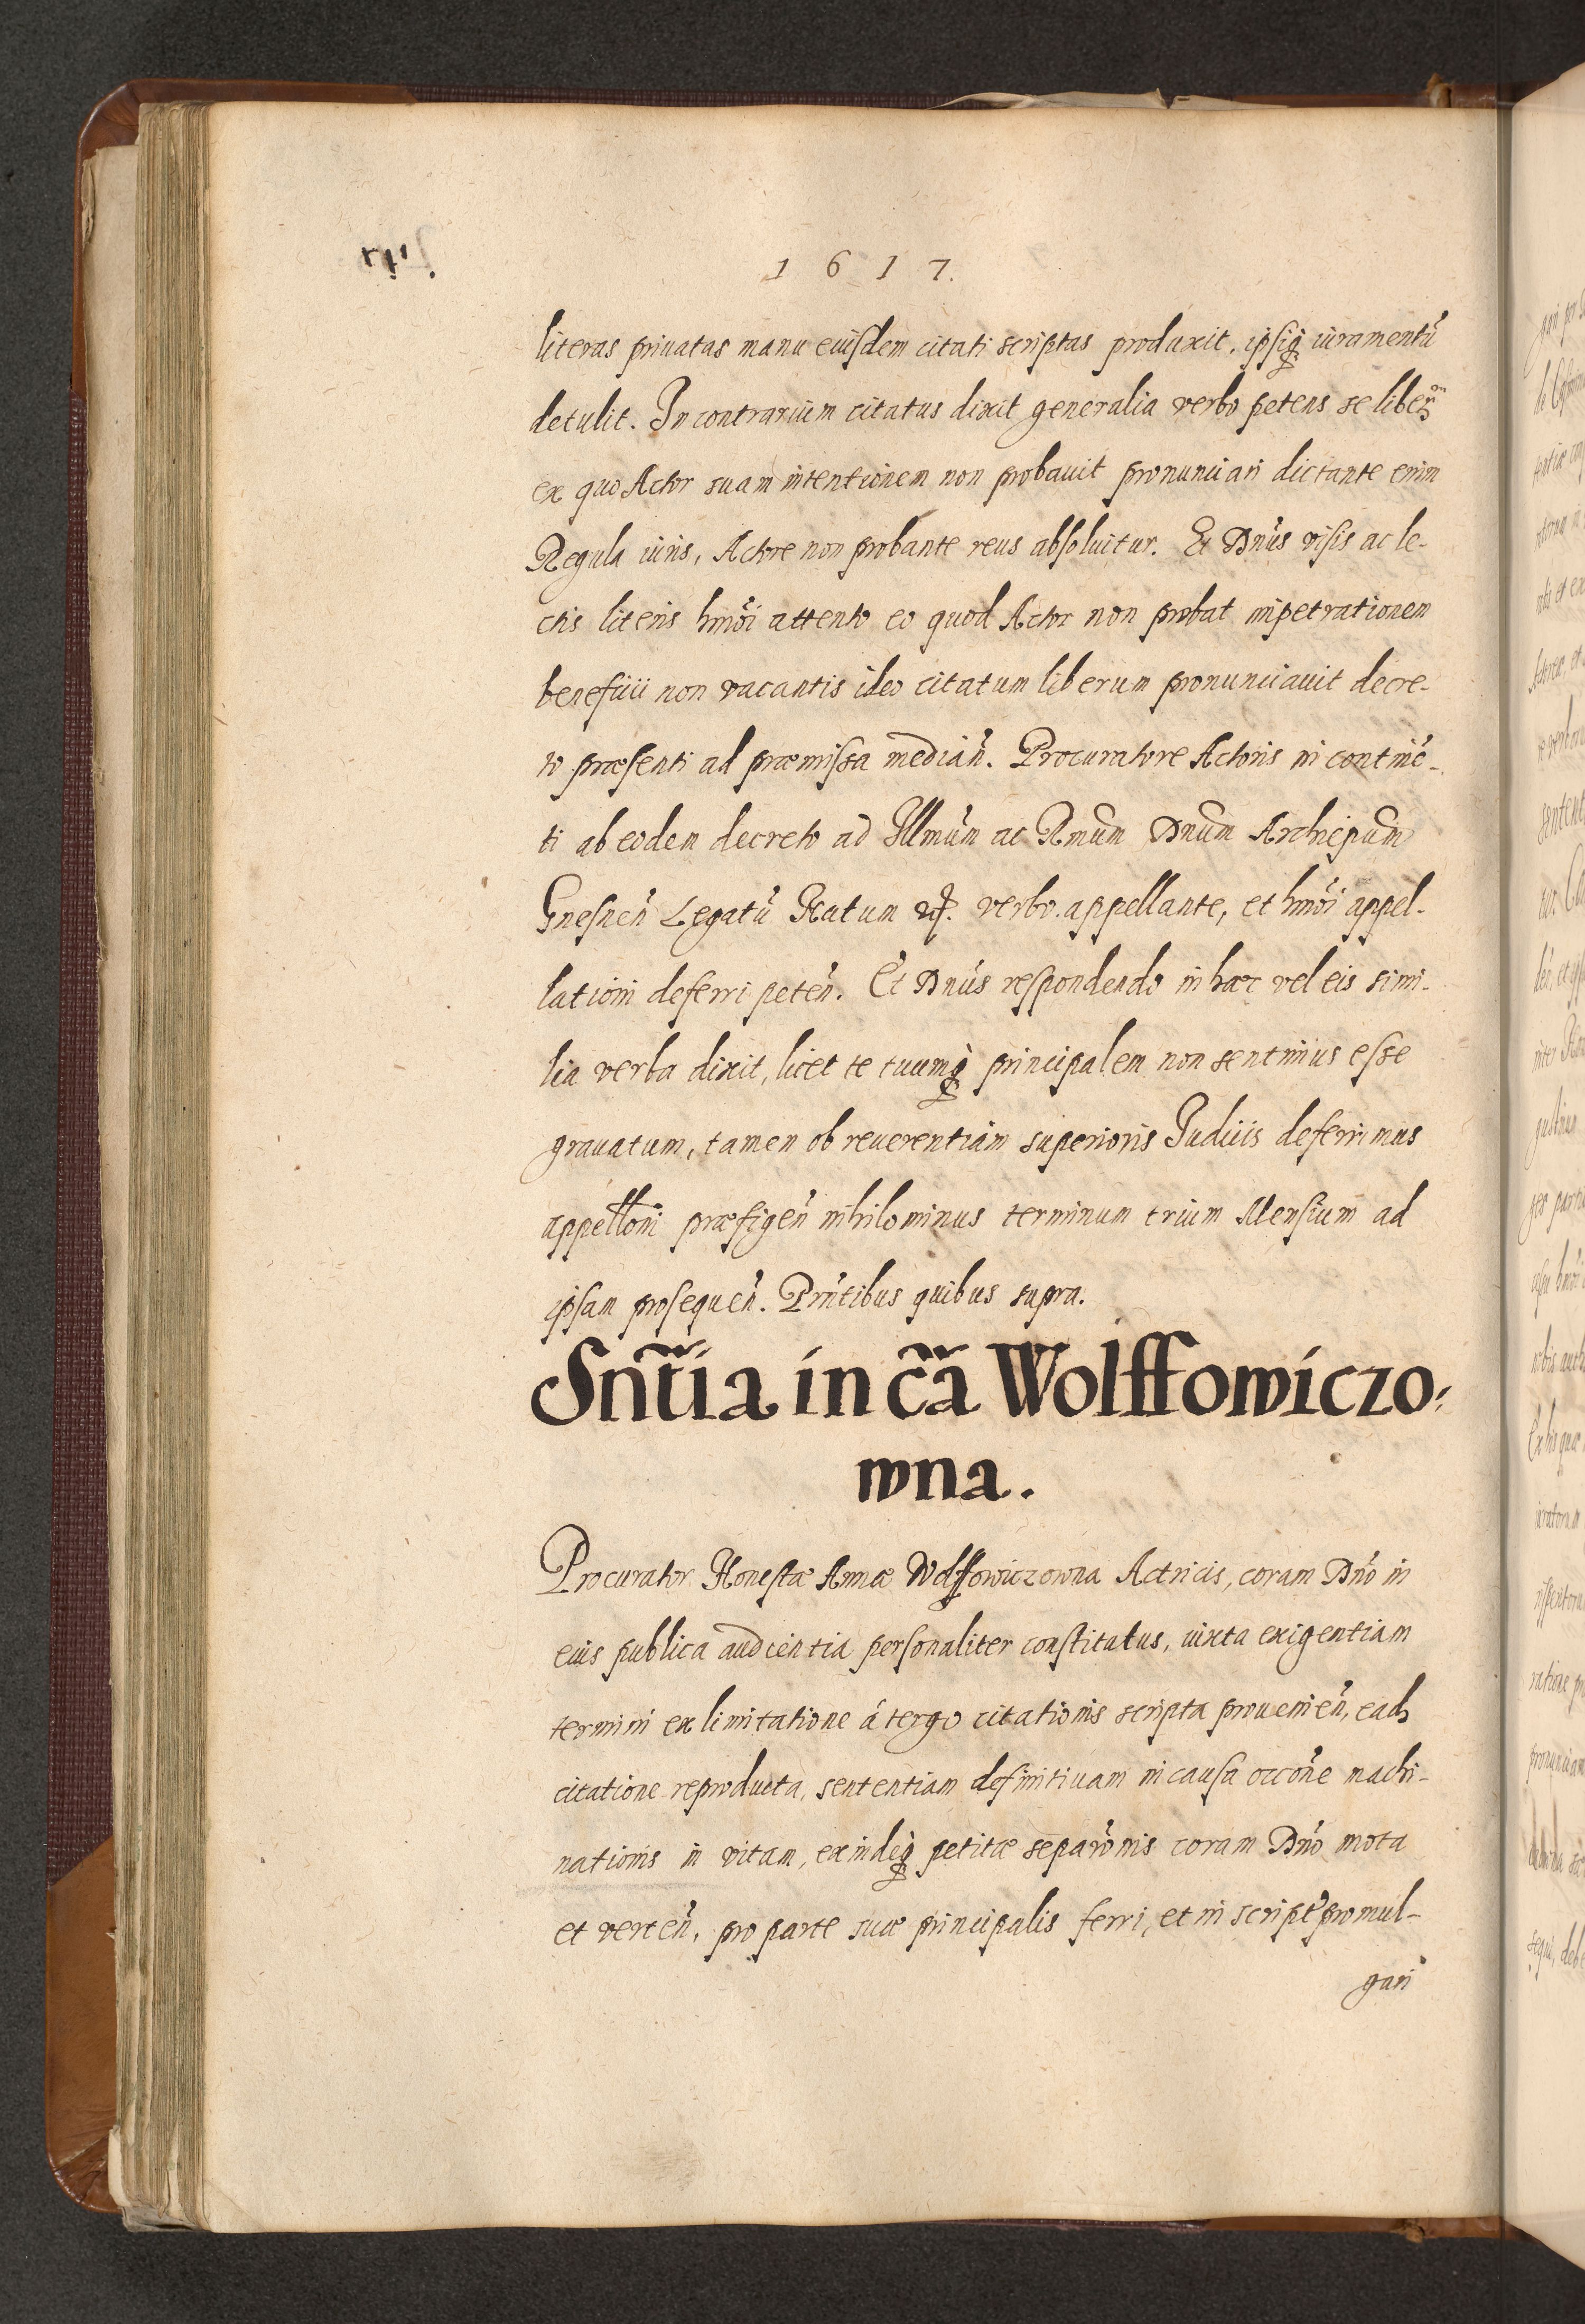 1617.
literas priuatas manu eiusdem citati scriptas produxit, ipsiq̃ iuramentũ
detulit. In contrarium citatus dixit generalia verbo petens se liber̃
ex quo Actor suam intentionem non probauit pronunciari dictante enim
Regula iuris, Actore non probante reus absoluitur. Et Dñus visis ac le-
ctis literis hmõi attento eo quod Actor non probat impetrationem
beneficii non vacantis ideo citatum liberum pronunciauit decre-
to præsenti ad præmissa median̄. Procuratore Actoris in continẽ-
ti ab eodem decreto ad Illmũn ac Rmũm Dnũm Archiepũm
Gnesnen̄ Legatũ Natum &c. verbo appellante, et hmõi appel-
lationi deferri peten̄. Et Dñus respondendo in hæc vel eis simi-
lia verba dixit, licet te tuumq̃ principalem non sentimus esse
grauatum, tamen ob reuerentiam superioris Judicis deferrimus
appellõni præfigen̄ nihilominus terminum trium Mensium ad
ipsam prosequen̄. Pn̄tibus quibus supra.
Sn̄tia in cã Wolffowiczo-
wna.
Procurator Honestæ Annæ Wolffowiczowna Actricis, coram Dño in
eius publica audientia personaliter constitutus, iuxta exigentiam
termini ex limitatione á tergo citationis scripta prouenien̄, ead
citatione reproducta, sententiam definitiuam in causa occõne machi-
nationis in vitam, exindeq̃ petitæ separõnis coram Dño mota
et verten̄, pro parte suæ principalis ferri, et in script̃ promul-
gari